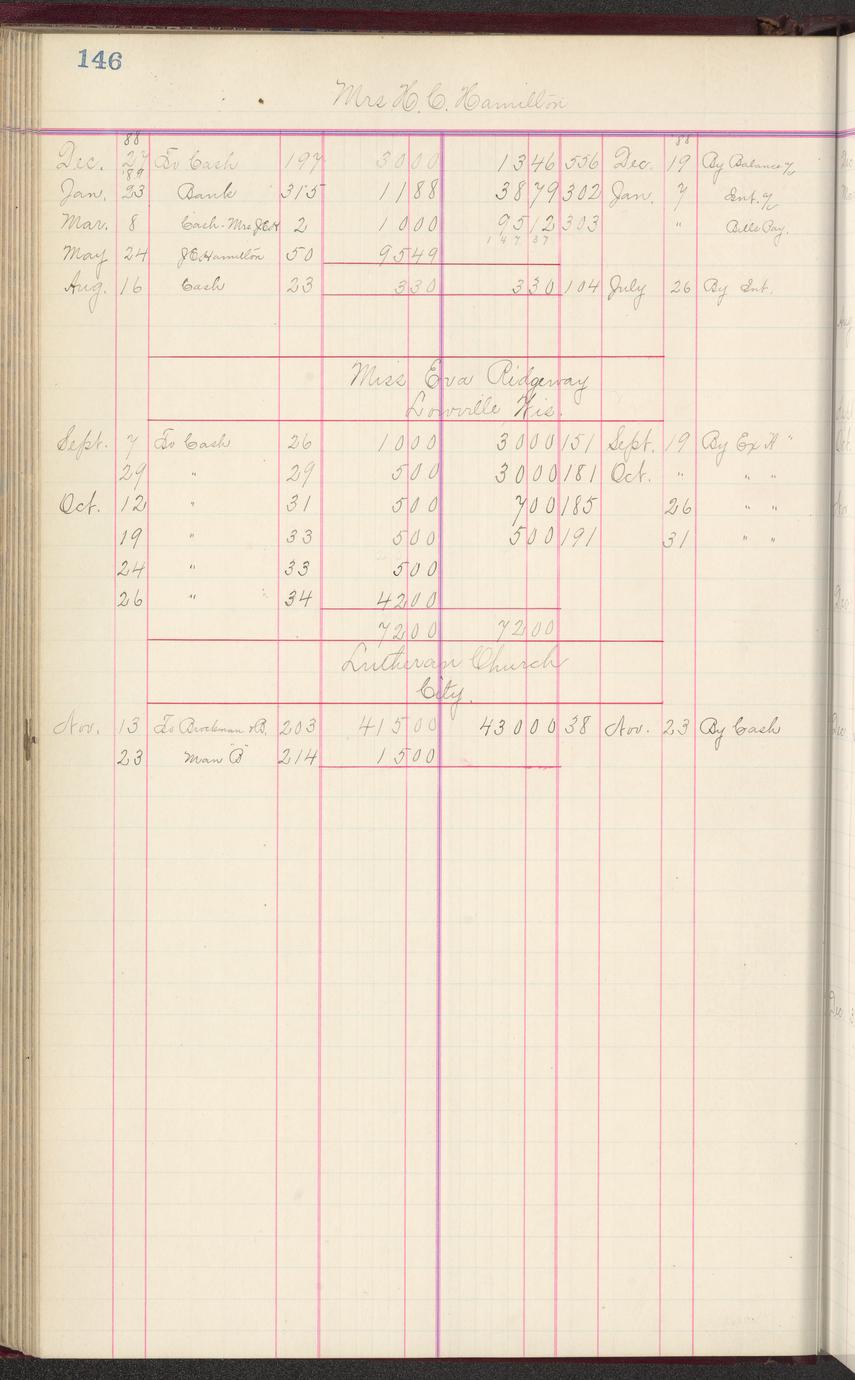 146
Mrs H. C. Hamilton
88 '88
Dec. 27 To Cash 197 3000 1346 556 Dec. 19 By Balance
'89
Jan. 23 Bank 315 1188 3879 302 Jan. 7 Int.
Mar. 8 Cash - Mrs J.E.H 2 1000 9512 303 " Bills Pay.
147 37
May 24 J E Hamilton 50 9549
Aug. 16 Cash 23 330 330 104 July 26 By Int.
Miss Eva Ridgeway
Lowville Wis.
Sept. 7 To Cash 26 1000 3000 151 Sept. 19 By Ex "A"
29 " 29 500 3000 181 Oct. " " "
Oct. 12 " 31 500 700 185 26 " "
19 " 33 500 500 191 31 " "
24 " 33 500
26 " 34 4200
7200 7200
Lutheran Church
City.
Nov. 13 To Brockman & B. 203 41500 43000 38 Nov. 23 By Cash
23 Man "B" 214 1500